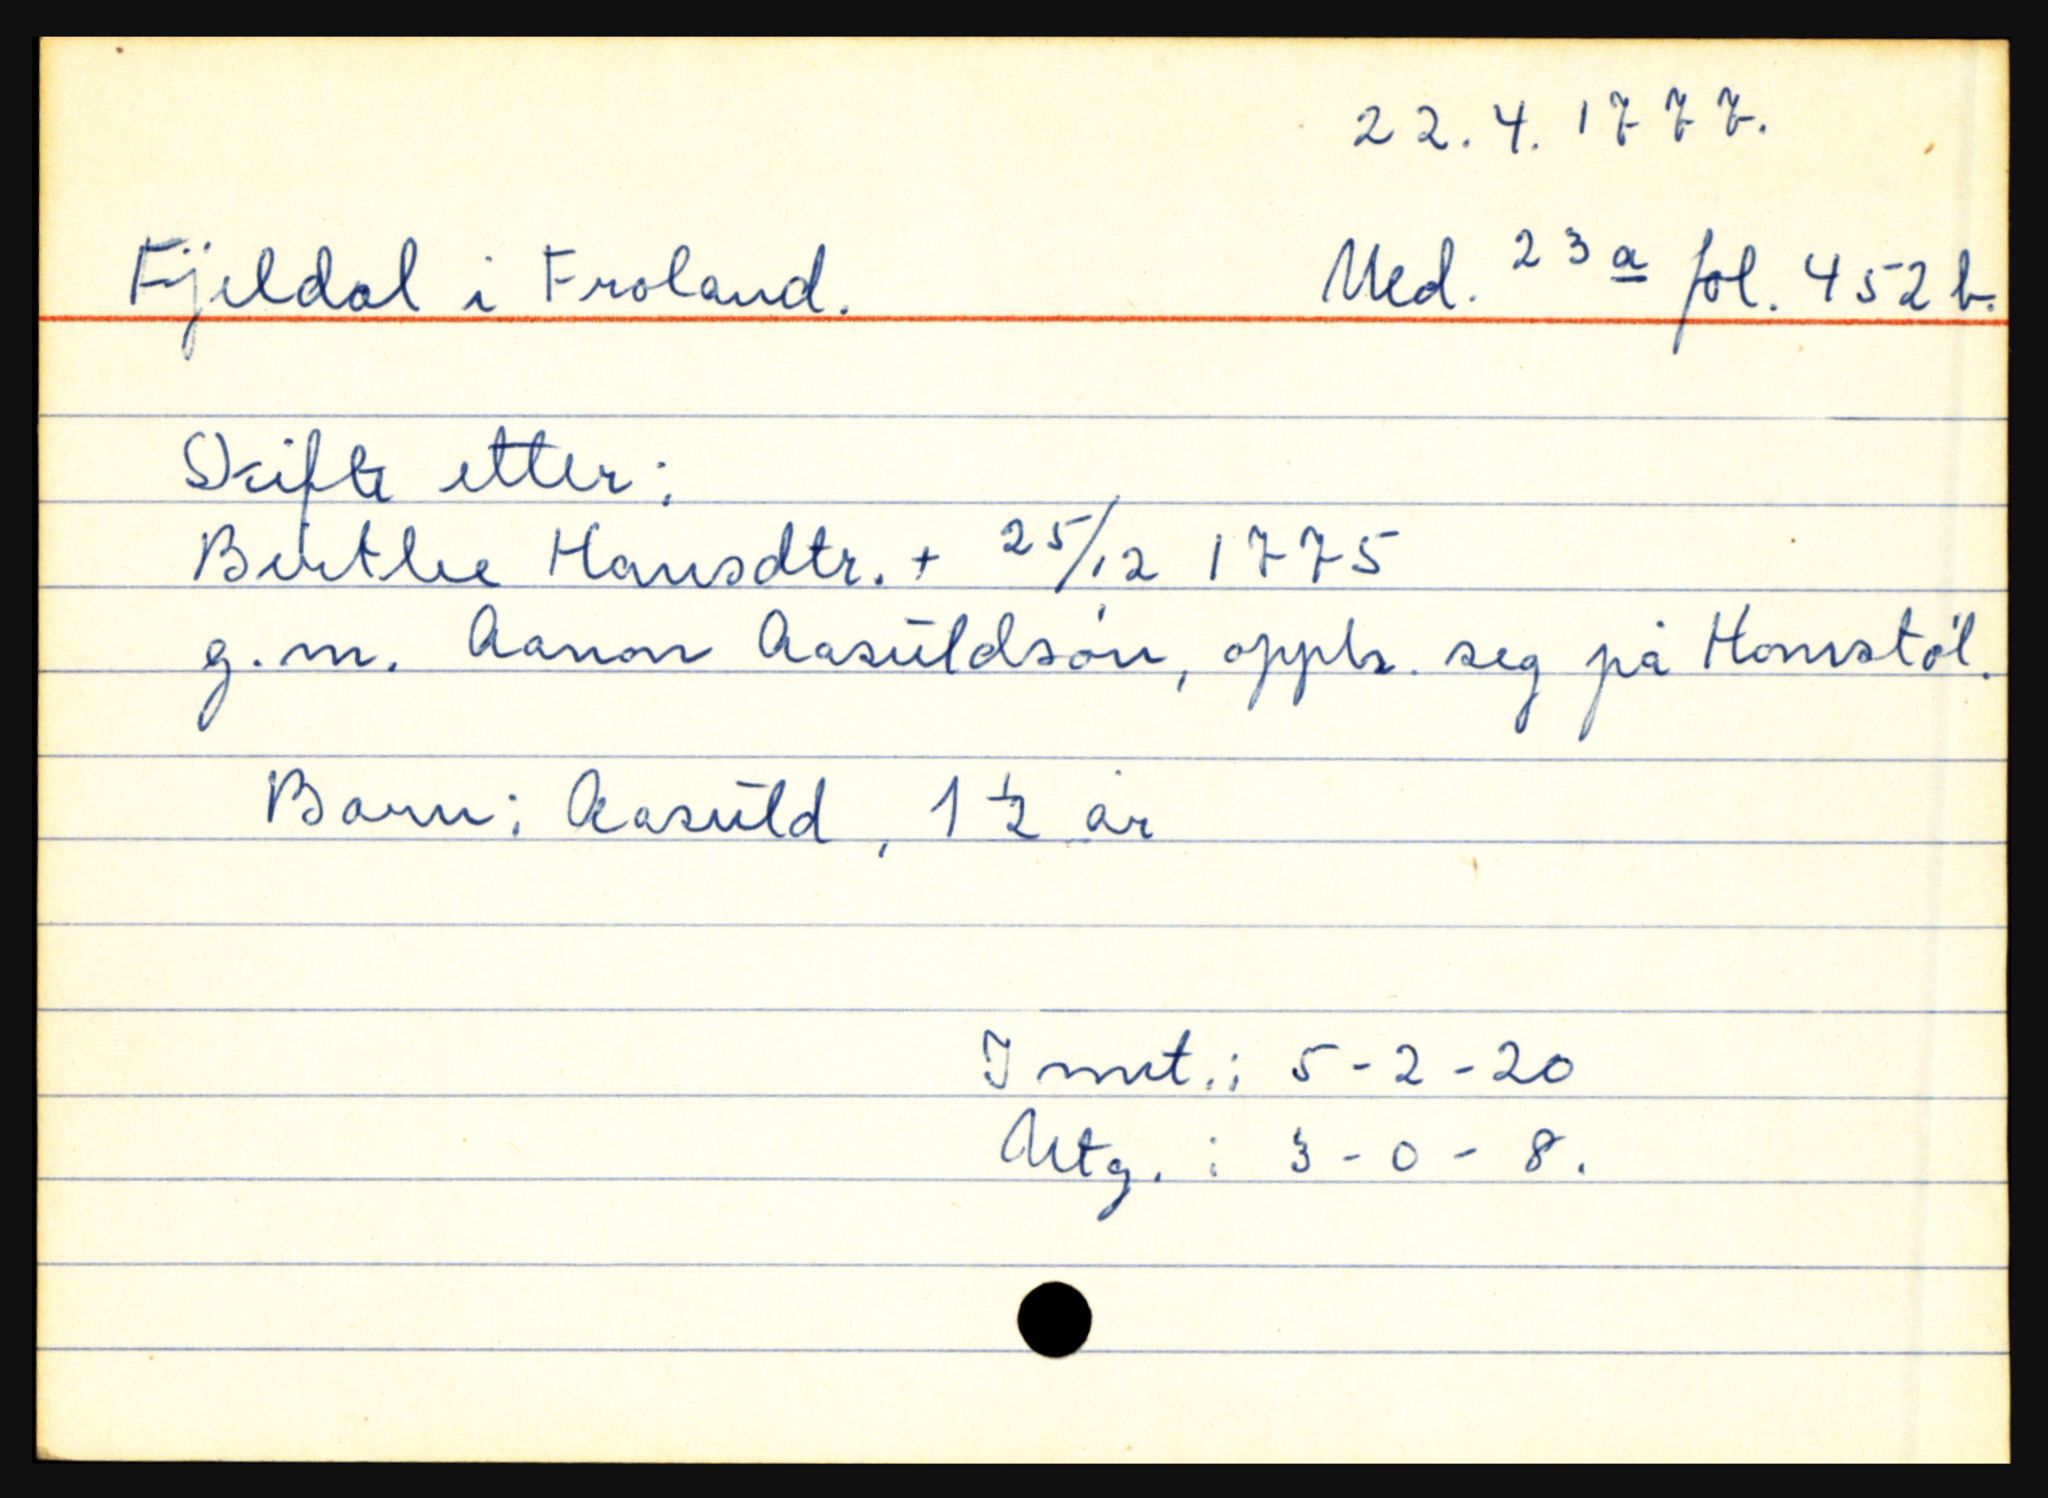 22.4.1777.
Fjeldal i Froland. Ned. 23a fol. 452 b.
Skifte etter:
Birthe Hansdtr. + 25/12 1775
g.m. Aanon Aasuldsøn, opph. seg på Homstøl.
Barn: Aasuld, 1 1/2 år
Innt.: 5-2-20
Utg.: 3-0-8.